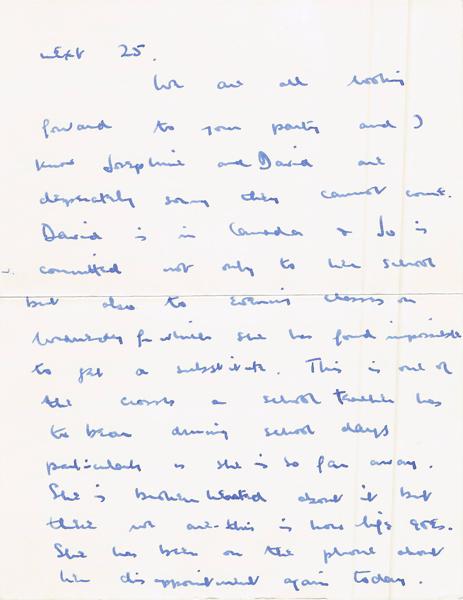 next 25.
We are all looking
forward to your party and I
know Josephine and David are
desperately sorry they cannot come.
David is in Canada & Jo is
committed not only to her school
but also to evening classes on
Wednesday for which she has found impossible
to get a substitute. This is one of
the crosses a school teacher has
to bear during school days
particularly as she is so far away.
She is broken hearted about it but
there we are - this is how life goes.
She has been on the phone about
her disappointment again today.